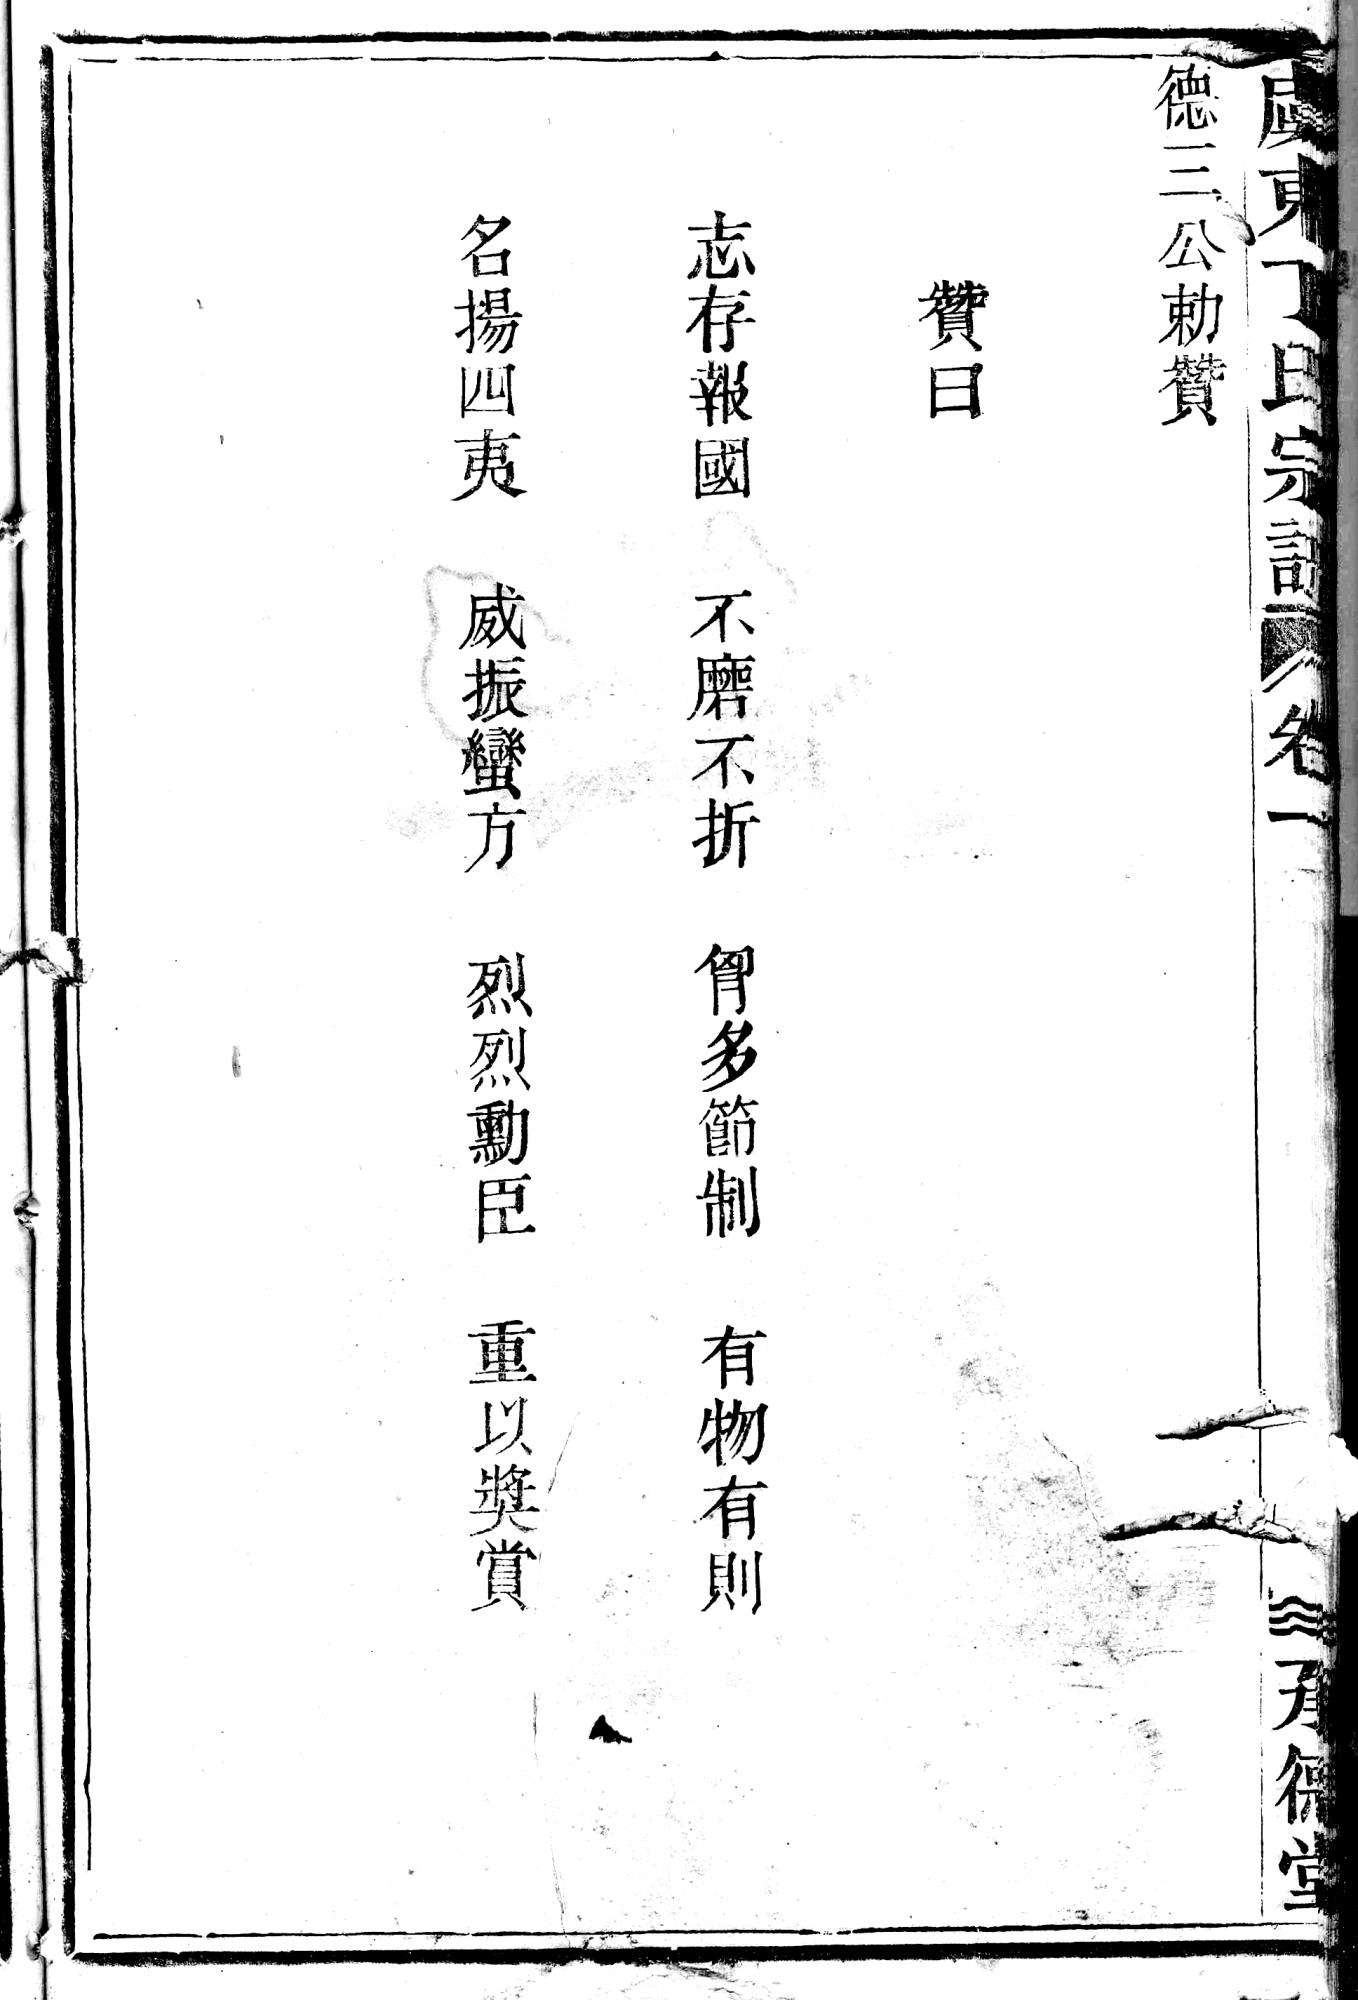 東丁氏宗譜 卷一 承德堂
德三公勅贊
贊曰
志存報國 不磨不折 胷多節制 有物有則
名揚四夷 威振蠻方 烈烈勳臣 重以獎賞